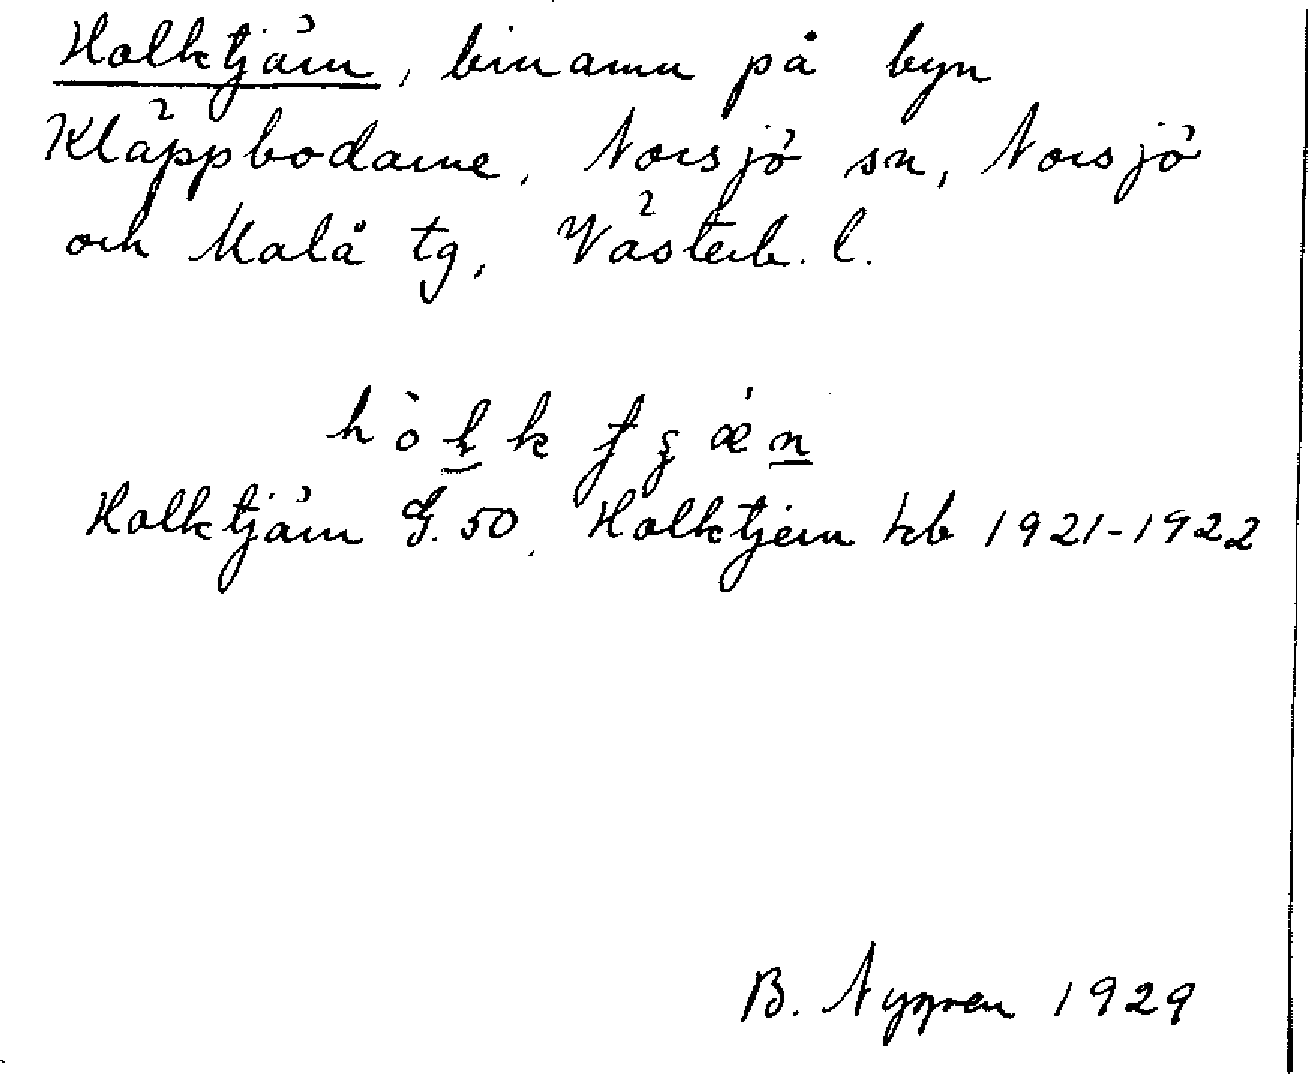 Holktjärn, binamn på byn
Kläppbodarne, Norsjö sn, Norsjö
och Malå tg, Västerb. l.
Holktjärn G. 50. Holktjern kb 1921-1922
B. Nygren 1929